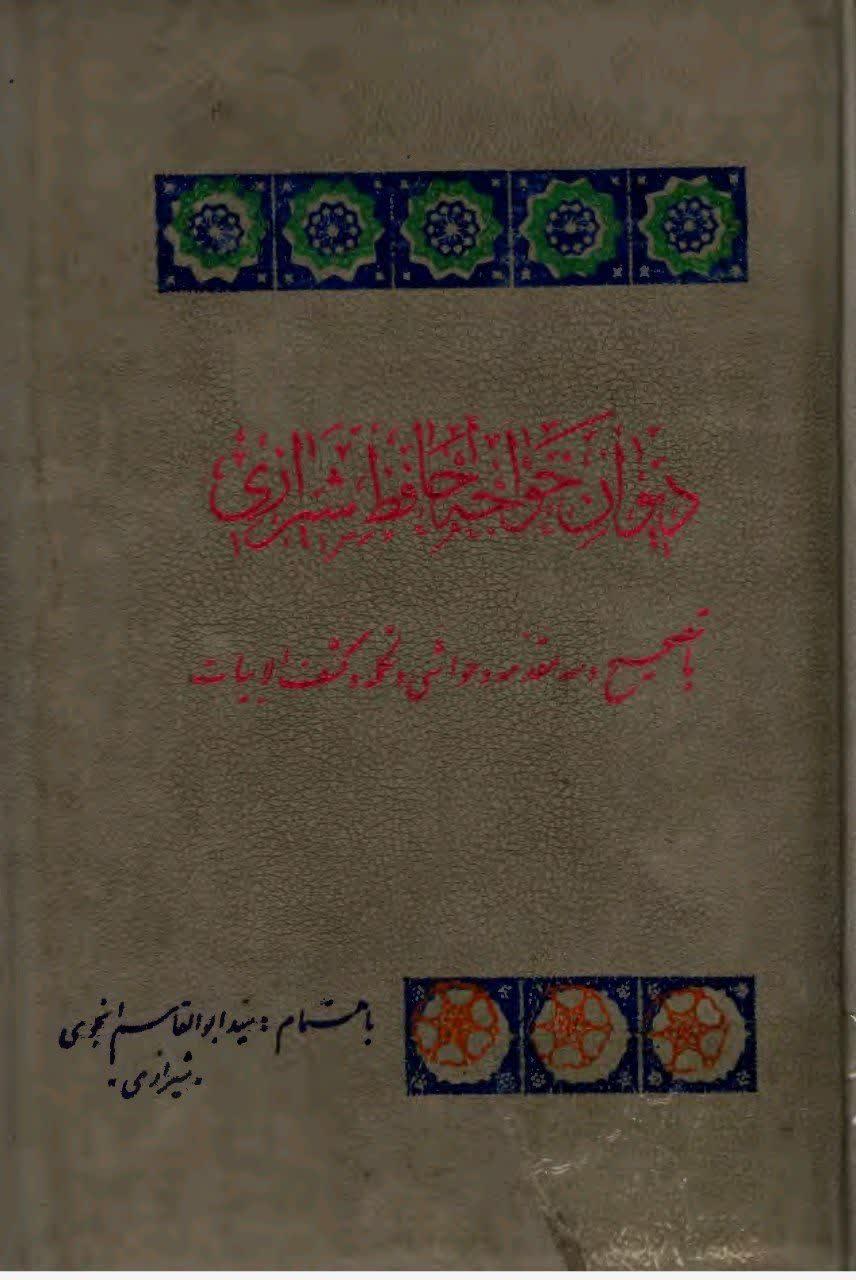 دیوان خواجه حافظ شیرازی
با تصحیح و سه مقدمه و حواشی و تکمله و کشف الابیات
باهتمام : سید ابوالقاسم انجوی
شیرازی